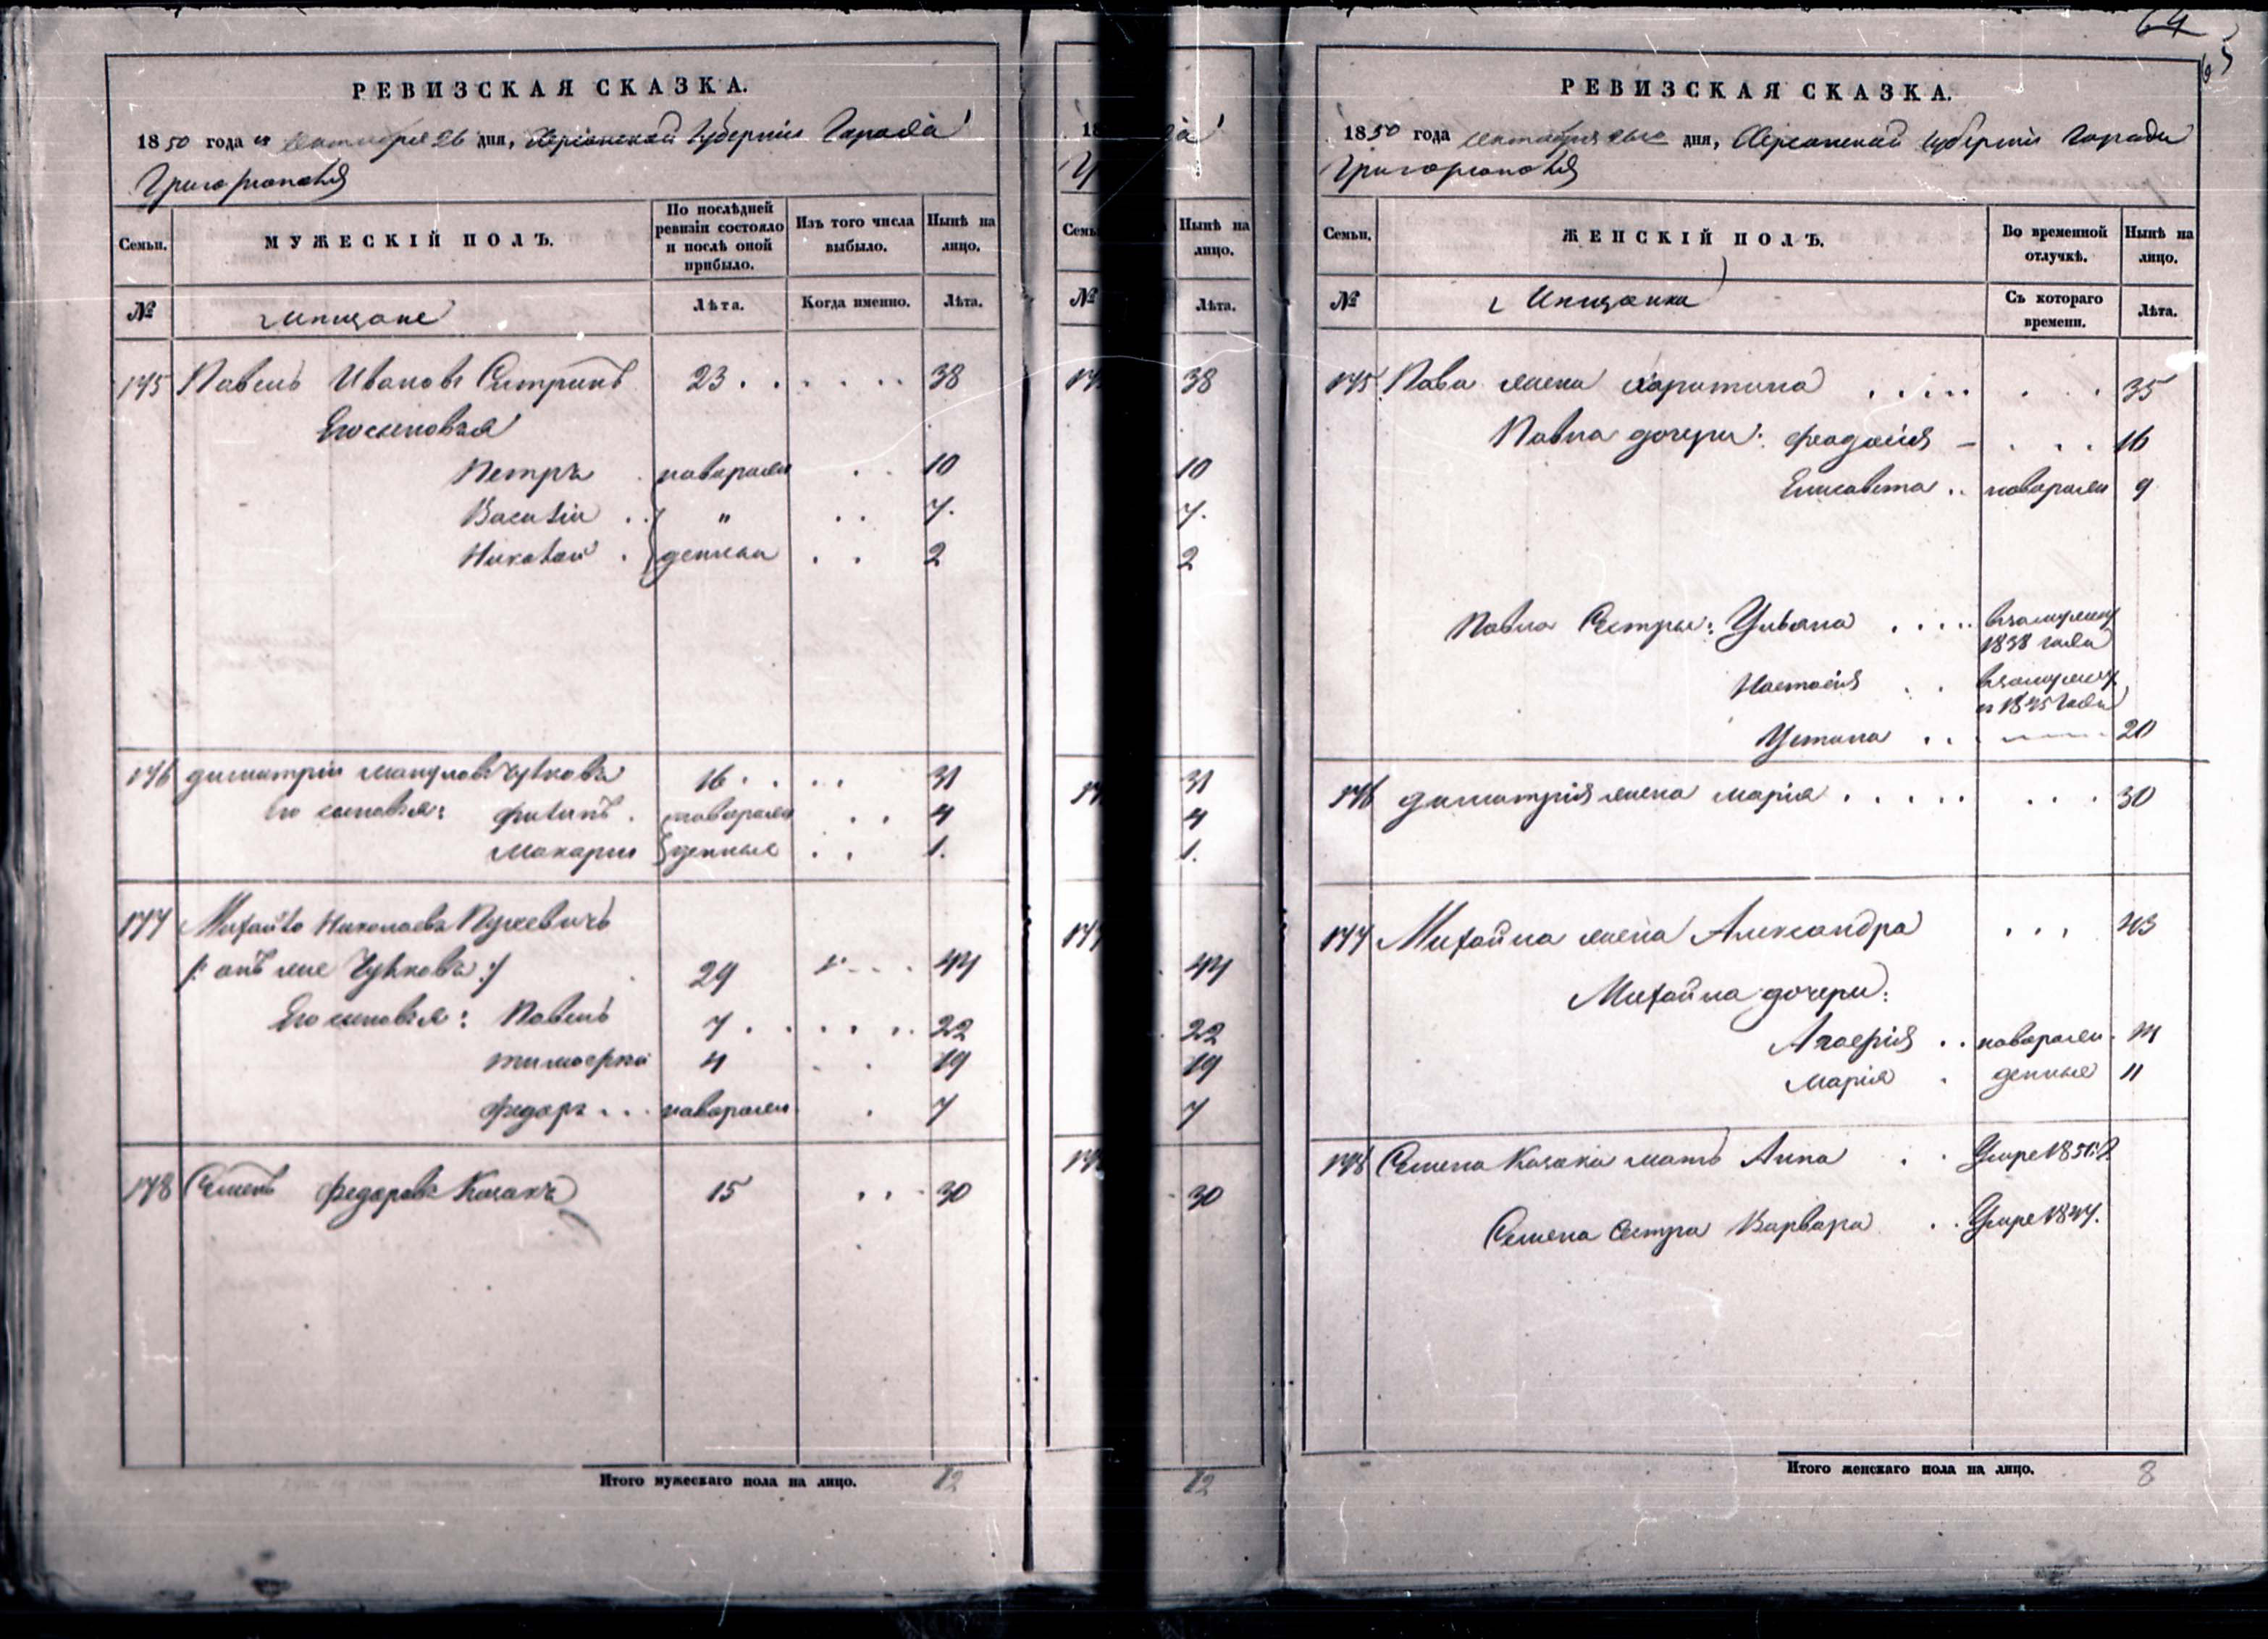 РЕВИЗСКАЯ СКАЗКА.
1850 года октября 26 дня, Херсонской Губернии Города
Григориополя
Семьи.
МУЖЕСКІЙ ПОЛЪ.
По послѣдней ревизіи состояло и послѣ оной прибыло.
Изъ того числа выбыло.
Нынѣ на лицо.
№
мещане
Лѣта.
Когда именно.
Лѣта.
175 Павелъ Ивановъ 23 38
Его сыновья
Петръ новорож 10
Василій " 7.
Николай денные 2
176 Димитрій 16 31
его сыновья: Филипъ новорож 4
Макарій денные 1.
177 Михайло Николаевъ
/: онъ же :/ 29 44
Его сыновья: Павелъ 7 22
Тимофей 4 19
Федоръ новорож 7
178 Семенъ Федоровъ Козакъ 15 30
Итого мужескаго пола на лицо. 12
Нынѣ на лицо.
№
Лѣта.
38
10
7.
2
31
4
1.
44
22
19
7
30
12
64
65
РЕВИЗСКАЯ СКАЗКА.
1850 года октября дня, Херсонской губерніи Города
Григориополя
Семьи.
ЖЕНСКІЙ ПОЛЪ.
Во временной отлучкѣ.
Нынѣ на лицо.
№
Мещанки
Съ котораго времени.
Лѣта.
175 Павла жена Харитина 35
Павла дочери: Феодосія 16
Елисавета новорож 9
Павла Сестры: Ульяна взамужеу
1838 года
Настасія взамужеу
1845 года
Устина 20
176 Димитрія жена Марія 30
177 Михайла жена Александра 43
Михайла дочери:
новорож 14
Марія денные 11
178 Семена Козака мать Анна Умре
Семена Сестра Варвара Умре 1847.
Итого женскаго пола на лицо. 8